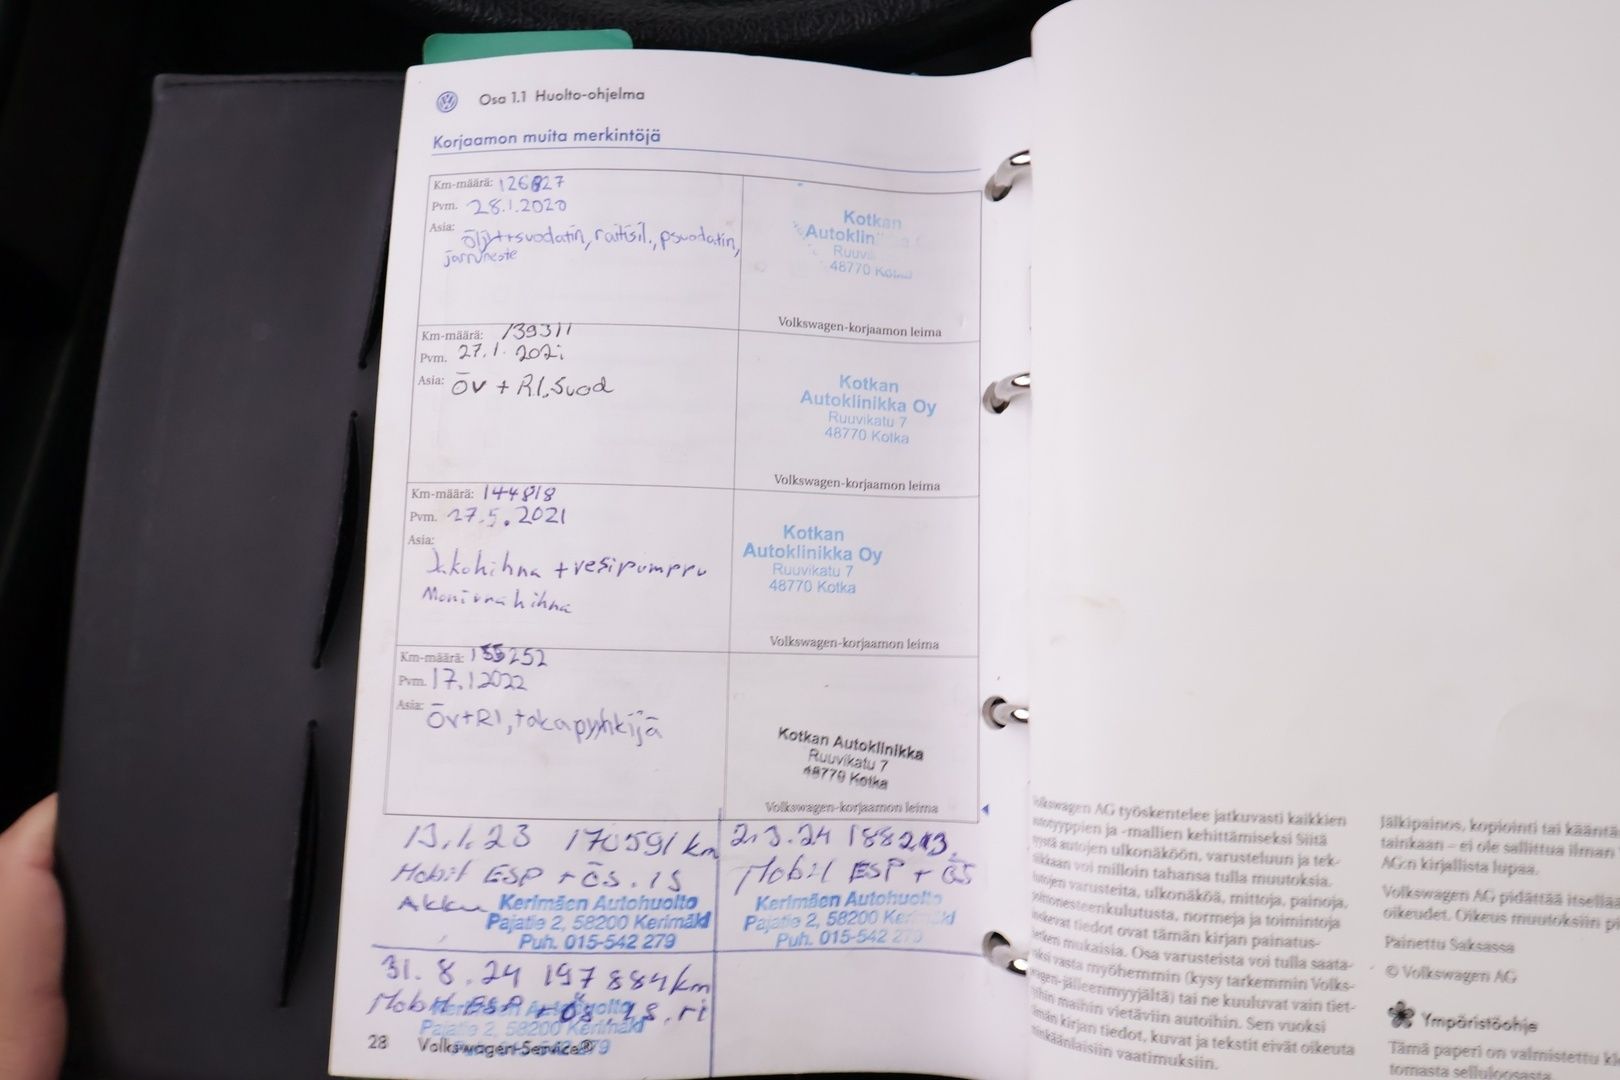 Osa 1.1 Huolto-ohjelma
Korjaamon muita merkintöjä
Km-määrä: 126827
Pvm. 28.1.2020
Asia: öljyt+suodatin, raitisil., psuodatin,
jarruneste
Kotkan
Autoklin
Ruuvi
48770 Kotka
Volkswagen-korjaamon leima
Km-määrä: 139311
Pvm. 27.1.2021
Asia: öv + RI.suod
Kotkan
Autoklinikka Oy
Ruuvikatu 7
48770 Kotka
Volkswagen-korjaamon leima
Km-määrä: 144818
Pvm. 27.5.2021
Asia:
Jakohihna + vesipumppu
Moniurahihna
Kotkan
Autoklinikka Oy
Ruuvikatu 7
48770 Kotka
Volkswagen-korjaamon leima
Km-määrä: 155252
Pvm. 17.1.2022
Asia: öv+RI, takapyyhkijä
Kotkan Autoklinikka
Ruuvikatu 7
48770 Kotka
Volkswagen-korjaamon leima
13.1.23 170591 km
Mobil ESP + ös. is
Akku
Kerimäen Autohuolto
Pajatie 2, 58200 Kerimäki
Puh. 015-542 279
2.3.24 188213.
Mobil ESP + ös
Kerimäen Autohuolto
Pajatie 2, 58200 Kerimäki
Puh. 015-542 279
31.8.24 197884km
Mobil ESP + ös, is. ri
Kerimäen Autohuolto
Pajatie 2, 58200 Kerimäki
28 Volkswagen-Service®
Volkswagen AG työskentelee jatkuvasti kaikkien
autotyyppien ja -mallien kehittämiseksi Siitä
syystä autojen ulkonäköön, varusteluun ja tek-
niikkaan voi milloin tahansa tulla muutoksia.
Autojen varusteita, ulkonäköä, mittoja, painoja,
polttonesteenkulutusta, normeja ja toimintoja
koskevat tiedot ovat tämän kirjan painatus-
hetken mukaisia. Osa varusteista voi tulla saata-
viksi vasta myöhemmin (kysy tarkemmin Volks-
wagen-jälleenmyyjältä) tai ne kuuluvat vain tiet-
tyihin maihin vietäviin autoihin. Sen vuoksi
tämän kirjan tiedot, kuvat ja tekstit eivät oikeuta
minkäänlaisiin vaatimuksiin.
Jälkipainos, kopiointi tai kääntä
tainkaan – ei ole sallittua ilman
AG:n kirjallista lupaa.
Volkswagen AG pidättää itsellä
oikeudet. Oikeus muutoksiin pi
Painettu Saksassa
© Volkswagen AG
Ympäristöohje
Tämä paperi on valmistettu klo
tomasta selluloosasta